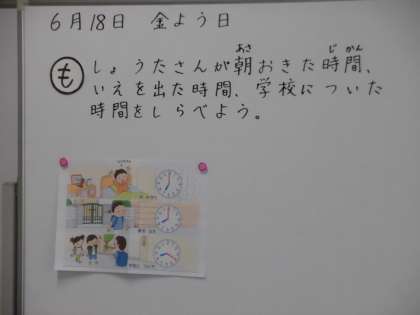 6月18日 金よう日
あさ じかん
も しょうたさんが朝おきた時間、
いえを出た時間、学校についた
時間をしらべよう。